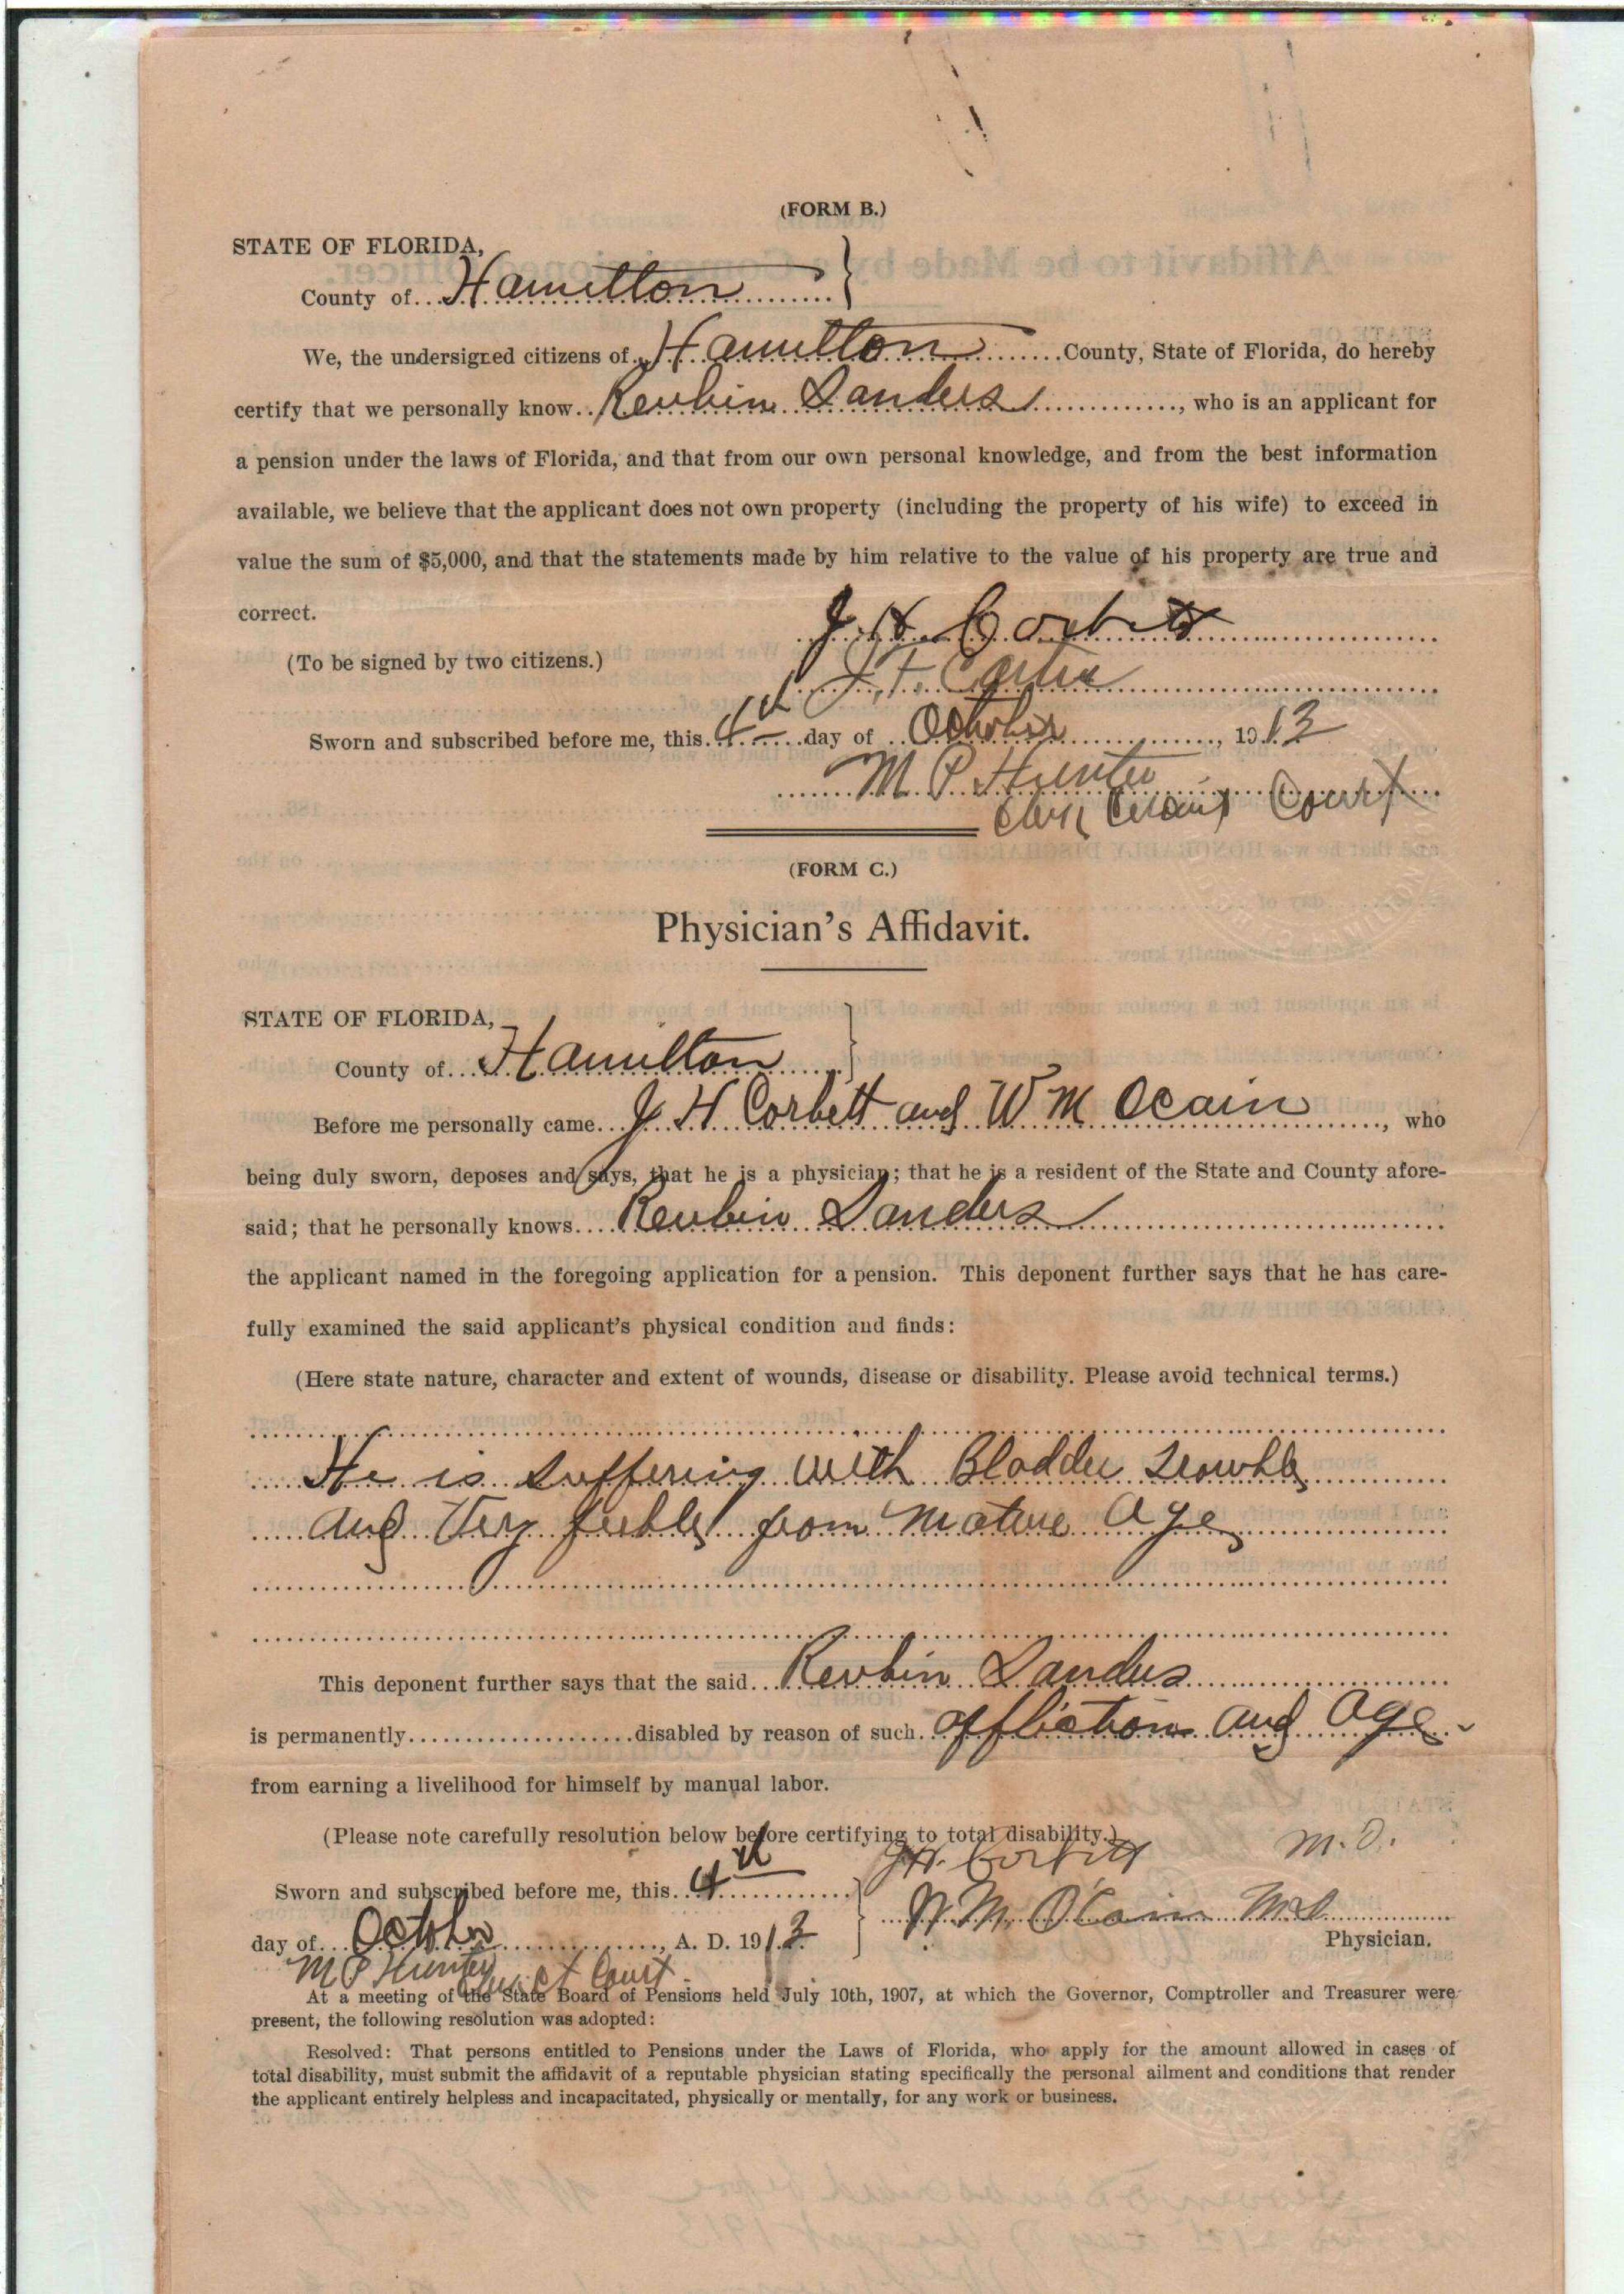 (FORM B.)
STATE OF FLORIDA,
County of Hamilton
We, the undersigned citizens of Hamilton County, State of Florida, do hereby
certify that we personally know Reubin Sanders, who is an applicant for
a pension under the laws of Florida, and that from our own personal knowledge, and from the best information
available, we believe that the applicant does not own property (including the property of his wife) to exceed in
value the sum of $5,000, and that the statements made by him relative to the value of his property are true and
correct.
J. H. Corbett
(To be signed by two citizens.)
J. F. Carter
Sworn and subscribed before me, this 4th day of October, 1913
M. P. Hunter
Clerk Circuit Court
(FORM C.)
Physician's Affidavit.
STATE OF FLORIDA,
County of Hamilton
Before me personally came J H Corbett and W M Ocain, who
being duly sworn, deposes and says, that he is a physician; that he is a resident of the State and County afore-
said; that he personally knows Reubin Sanders
the applicant named in the foregoing application for a pension. This deponent further says that he has care-
fully examined the said applicant's physical condition and finds:
(Here state nature, character and extent of wounds, disease or disability. Please avoid technical terms.)
He is suffering with Bladder trouble
and Very feeble from mature age
This deponent further says that the said Reubin Sanders
is permanently disabled by reason of such affliction and age
from earning a livelihood for himself by manual labor.
(Please note carefully resolution below before certifying to total disability.)
J H. Corbett M. D.
Sworn and subscribed before me, this 4th
W. M. O'Cain MD
day of October, A. D. 1913
Physician.
M P Hunter
Clerk Ct Court
At a meeting of the State Board of Pensions held July 10th, 1907, at which the Governor, Comptroller and Treasurer were
present, the following resolution was adopted:
Resolved: That persons entitled to Pensions under the Laws of Florida, who apply for the amount allowed in cases of
total disability, must submit the affidavit of a reputable physician stating specifically the personal ailment and conditions that render
the applicant entirely helpless and incapacitated, physically or mentally, for any work or business.